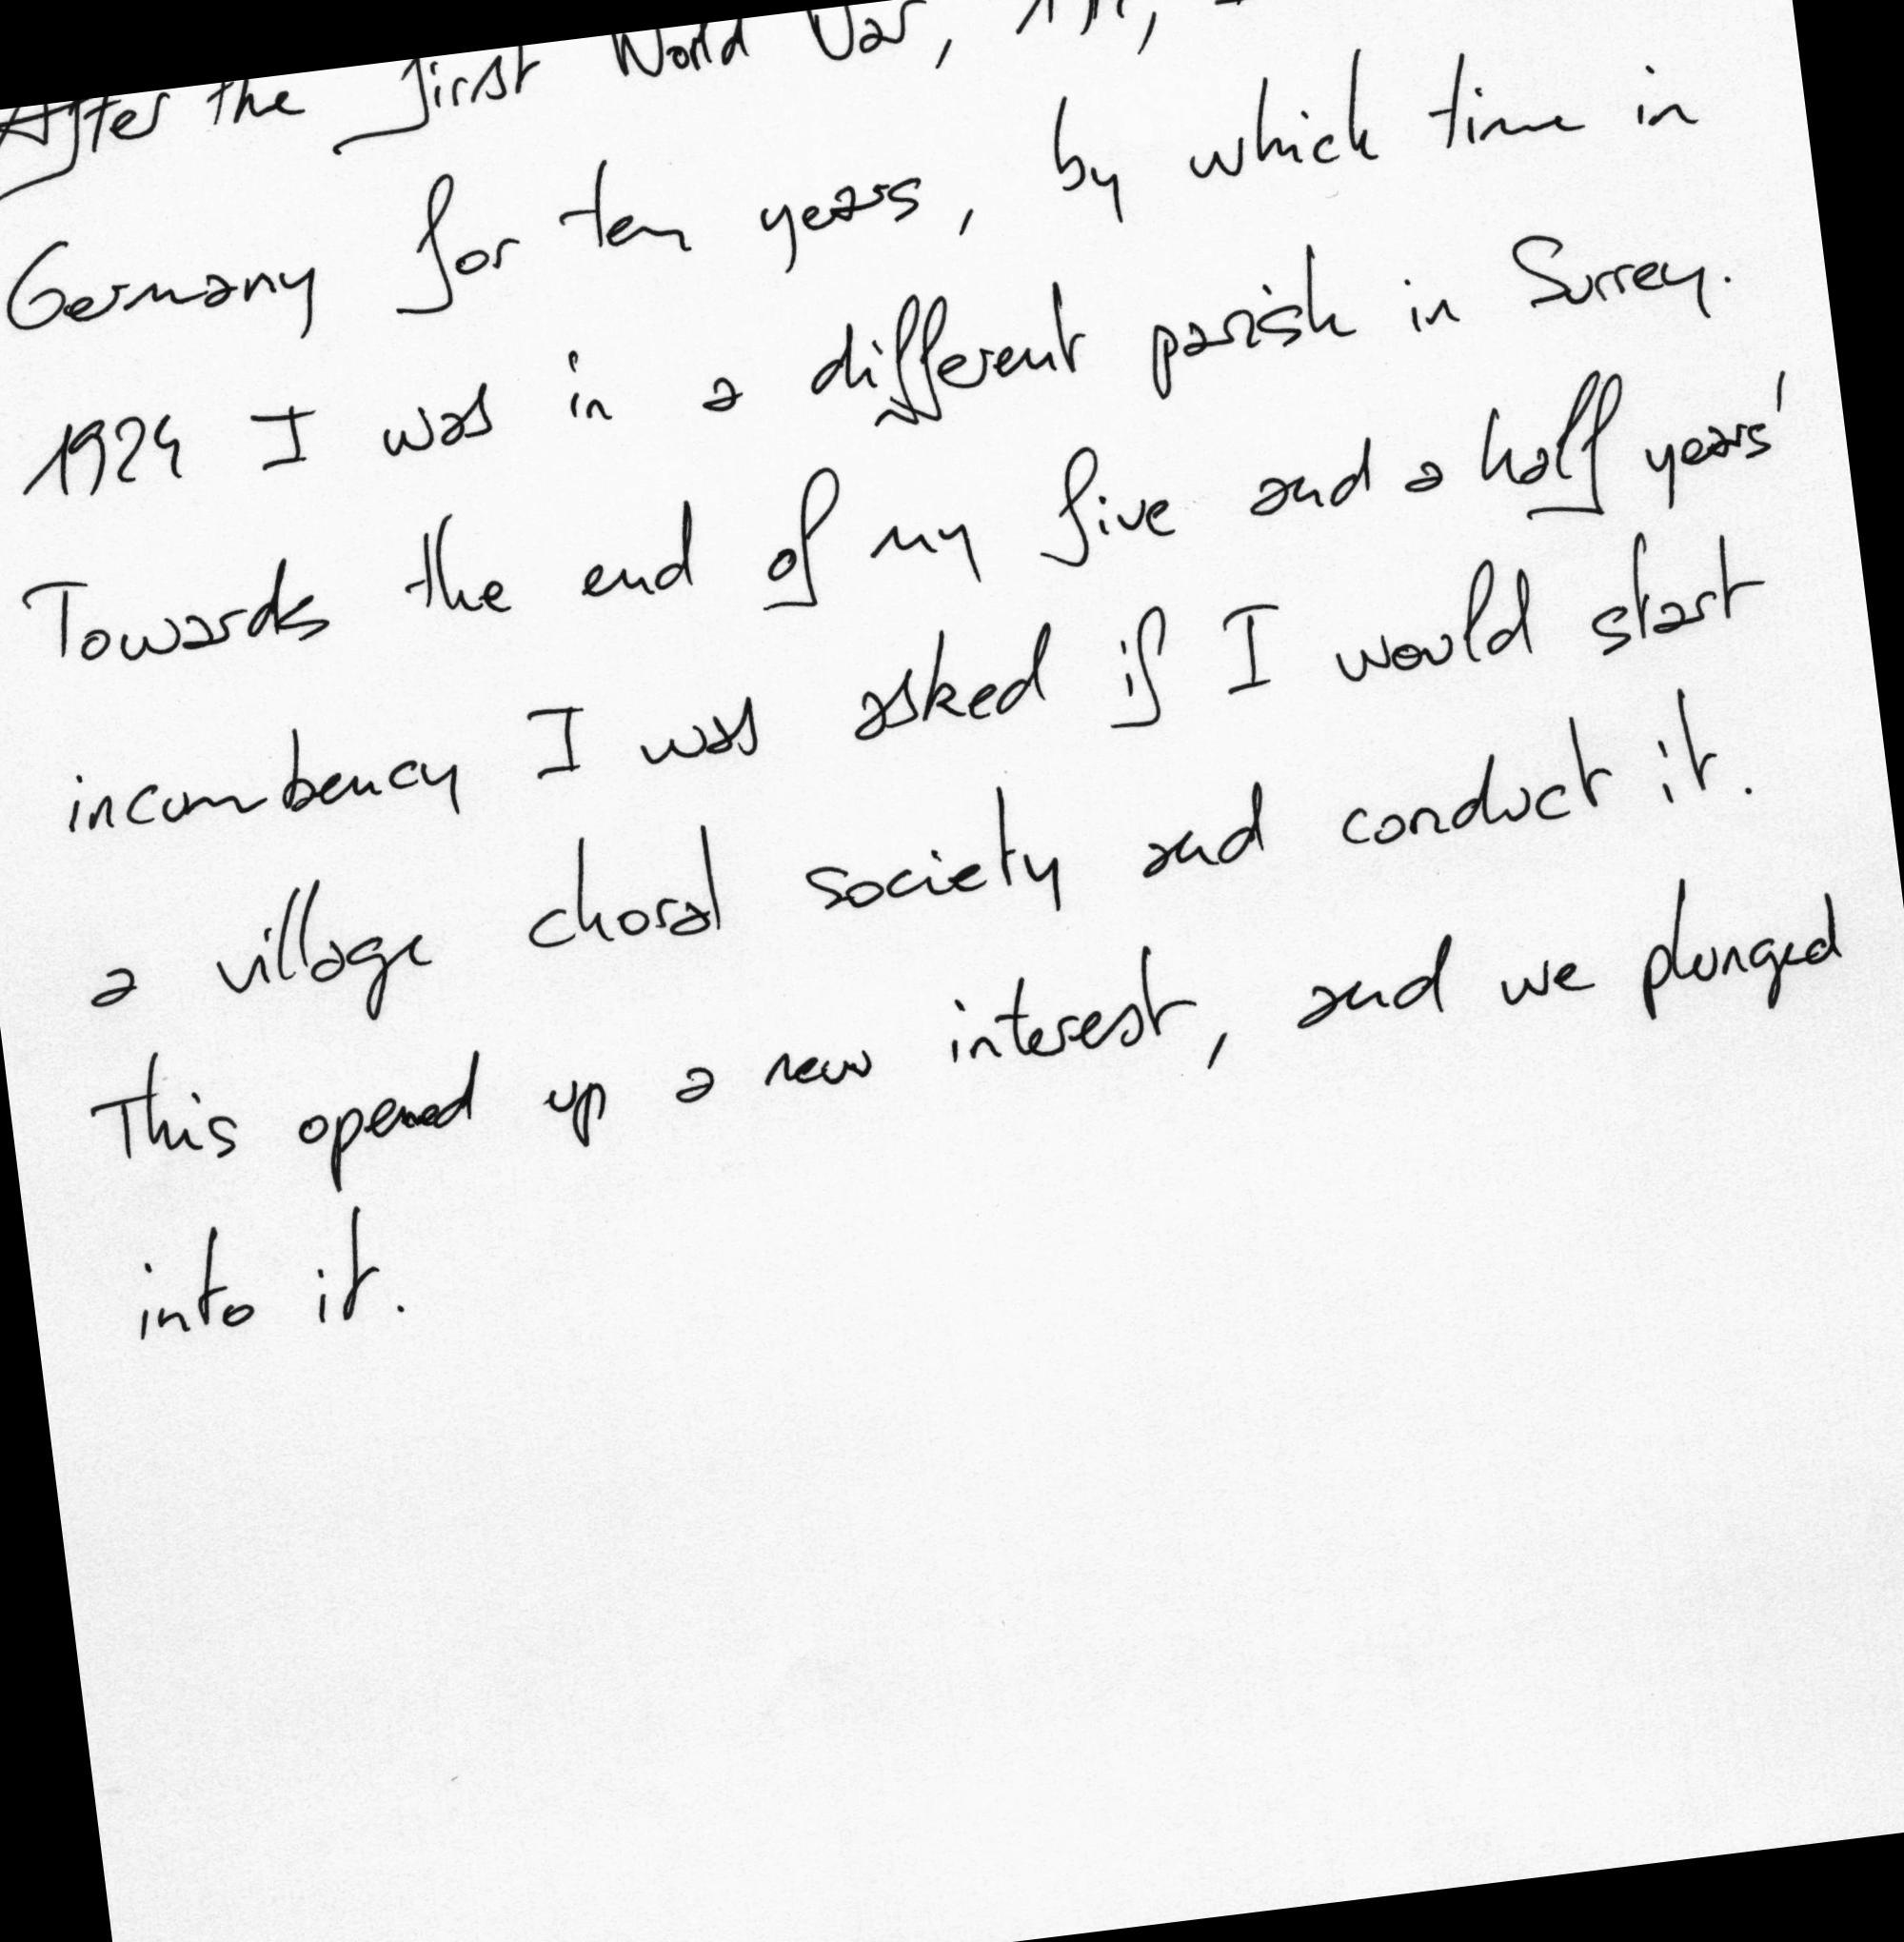 After the first World War,
Germany for ten years, by which time in
1924 I was in a different parish in Surrey.
Towards the end of my five and a half years'
incumbency I was asked if I would start
a village choral society and conduct it.
This opened up a new interest, and we plunged
into it.